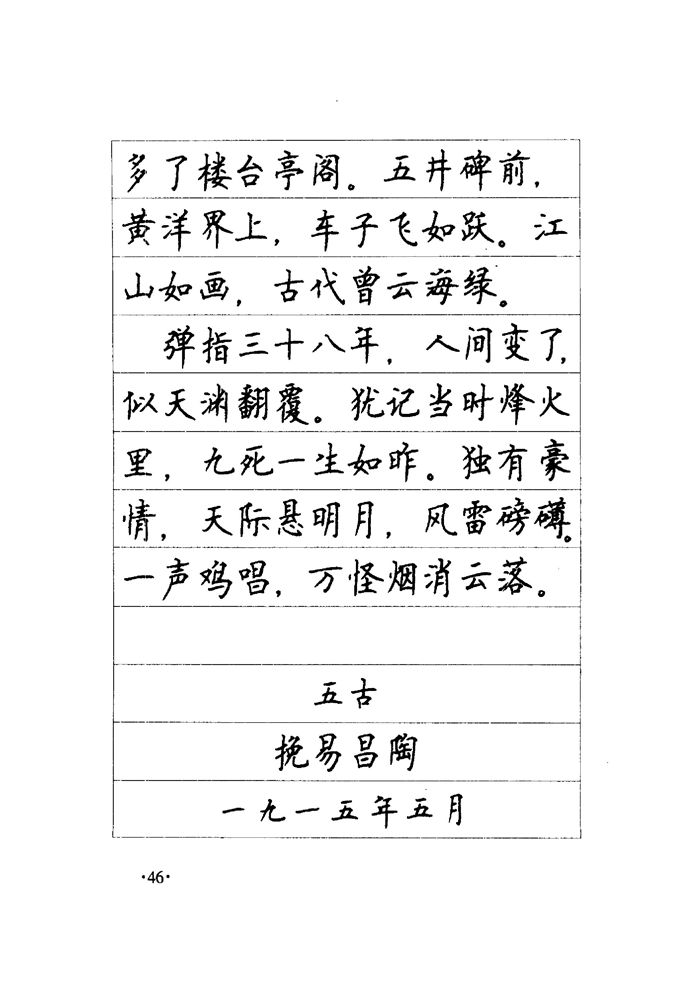 多了楼台亭阁。五井碑前，
黄洋界上，车子飞如跃。江
山如画，古代曾云海绿。
弹指三十八年，人间变了，
似天渊翻覆。犹记当时烽火
里，九死一生如昨。独有豪
情，天际悬明月，风雷磅礴。
一声鸡唱，万怪烟消云落。
五古
挽易昌陶
一九一五年五月
·46·